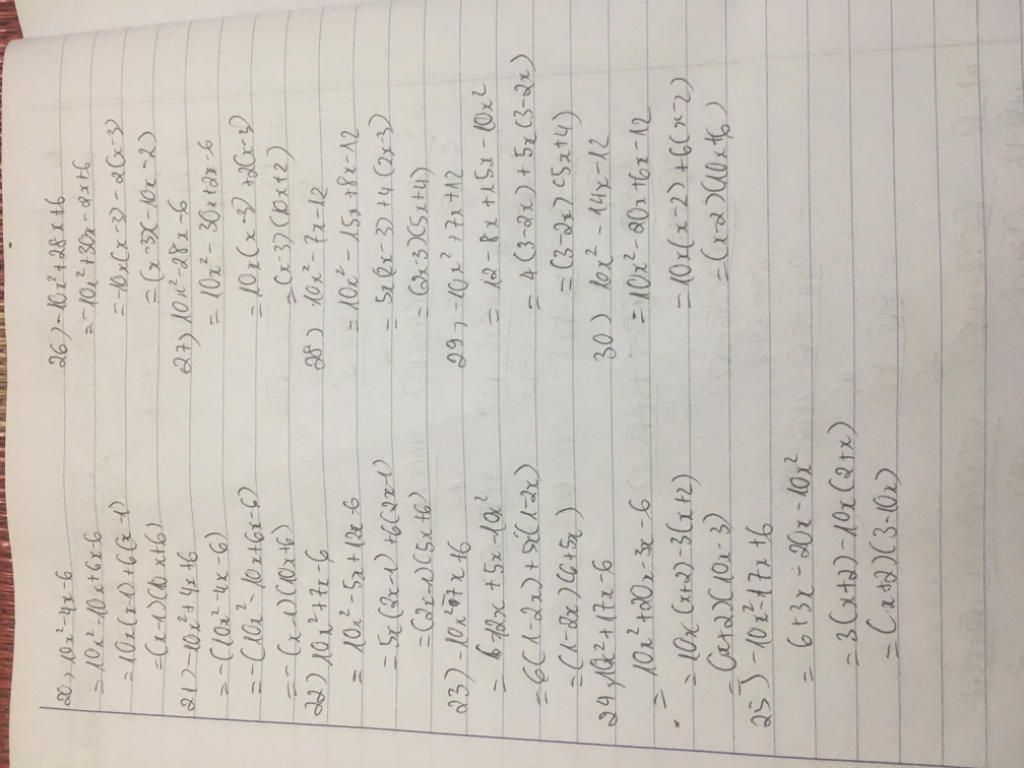 20) 10x²-4x-6
= 10x²-10x+6x-6
= 10x(x-1)+6(x-1)
= (x-1)(10x+6)
21) -10x²+4x+6
= -(10x²-4x-6)
= -(10x²-10x+6x-6)
= -(x-1)(10x+6)
22) 10x²+7x-6
= 10x²-5x+12x-6
= 5x(2x-1)+6(2x-1)
= (2x-1)(5x+6)
23) -10x²-7x+6
= 6-12x+5x-10x²
= 6(1-2x)+5x(1-2x)
= (1-2x)(6+5x)
24) 10x²+17x-6
= 10x²+20x-3x-6
= 10x(x+2)-3(x+2)
= (x+2)(10x-3)
25) -10x²-17x+6
= 6+3x-20x-10x²
= 3(x+2)-10x(2+x)
= (x+2)(3-10x)
26) -10x²+28x+6
= -10x²+30x-2x+6
= -10x(x-3)-2(x-3)
= (x-3)(-10x-2)
27) 10x²-28x-6
= 10x²-30x+2x-6
= 10x(x-3)+2(x-3)
= (x-3)(10x+2)
28) 10x²-7x-12
= 10x²-15x+8x-12
= 5x(2x-3)+4(2x-3)
= (2x3)(5x+4)
29) -10x²+7x+12
= 12-8x+15x-10x²
= 4(3-2x)+5x(3-2x)
= (3-2x)(5x+4)
30) 10x²-14x-12
= 10x²-20x+6x-12
= 10x(x-2)+6(x-2)
= (x-2)(10x+6)